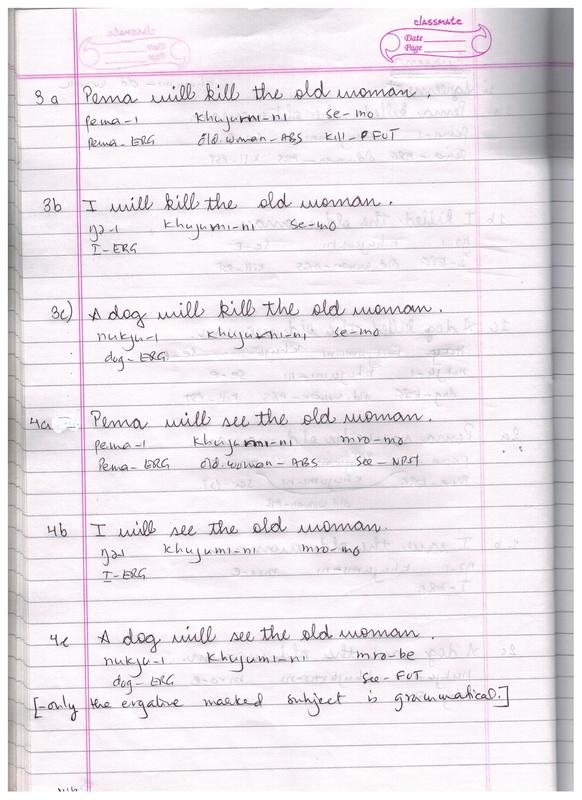 classmate
Date
Page
3a Pema will kill the old woman.
pema-i khujumi-ni se-mo
Pema-ERG old.woman-ABS kill-FUT
3b I will kill the old woman.
ŋa-i khujumi-ni se-mo
I-ERG
3c) A dog will kill the old woman.
nukju-i khujumi-ni se-mo
dog-ERG
4a Pema will see the old woman.
pema-i khujumi-ni mro-mo
Pema-ERG old.woman-ABS see-NPST
4b I will see the old woman.
ŋa-i khujumi-ni mro-mo
I-ERG
4c A dog will see the old woman.
nukju-i khujumi-ni mro-be
dog-ERG see-FUT
[-only the ergative marked subject is grammatical.]